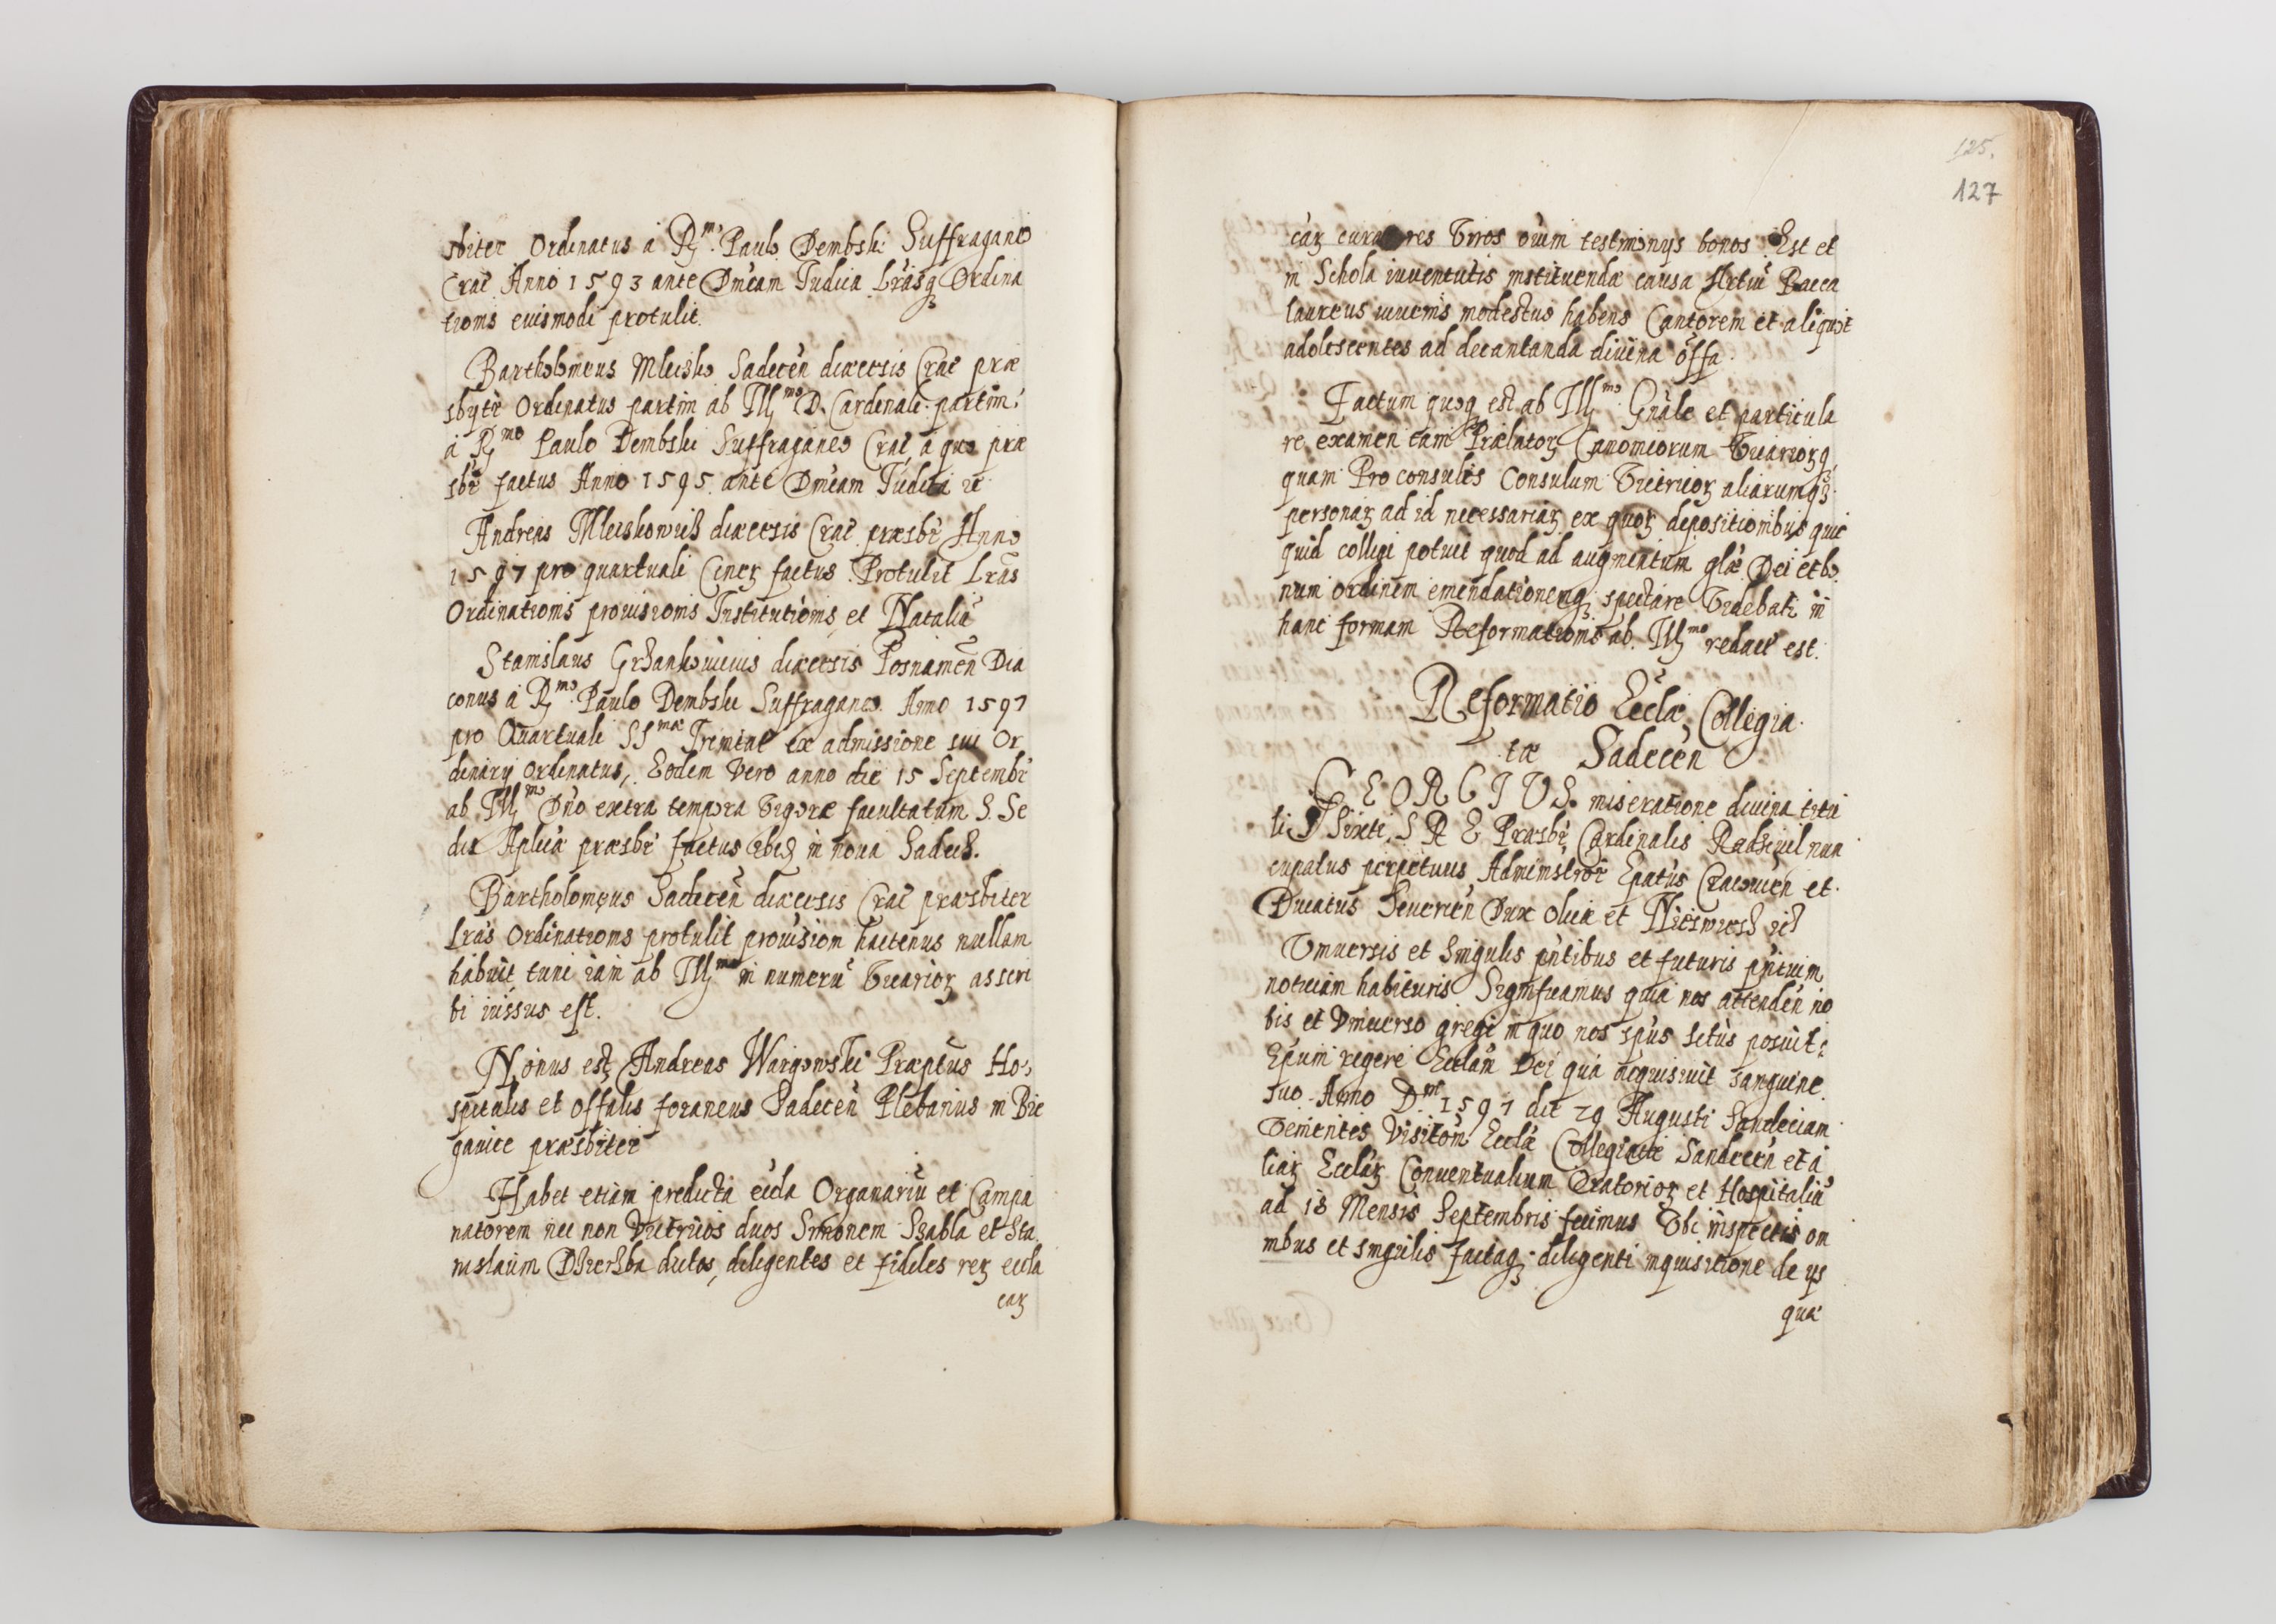 sbiter Ordinatus á R^mo. Paulo Dembski Suffraganeo
Crac̃ Anno 1593 ante Dn̄icam Judica Lr̄asq3 Ordina
tionis euismodi protulit.
Bartholomeus Mleczko Sadecen̄ dioecesis Crac̃ prae
sbytr̄ Ordinatus partim ab Ill^mo D. Cardinale partim
á R^mo Paulo Dembski Suffraganeo Crac̃, á quo prae
sbr̄ factus Anno 1595. ante Dn̄icam Judica ꝛc
Andreas Mleczkowicz dioecesis Crac̃ praesbr̄ Anno
1597 pro quartuali Cineꝝ factus. Protulit Lr̄as
Ordinationis prouisionis Institutionis, et Nataliū
Stanislaus dioecesis Posnanien̄ Dia
conus á R^mo. Paulo Dembski Suffraganeo. Anno 1597
pro Quartuali SS^mae Trinitat̄ ex admissione sui Or
dinarij Ordinatus, Eodem Vero anno die 15 Septembr̄
ab Ill^mo Dn̄o extra tempora Vigore facultatum S. Se
dis Aplicae praesbr̄ factus in noua Sadecz.
Bartholomeus Sadecen̄ dioecesis Crac̃ praesbiter
Lr̄as Ordinationis protulit prouision̄ hactenus nullam
habuit, tunc iam ab Ill^mo in numerū Vicarioꝝ asscri
bi iussus est.
Nonus est Andreas Wargowski Praeptus Ho
spitalis et offalis foraneus Sadecen̄ Plebanus in Bie
gonice praesbiter
Habet etiam predicta eccla Organariū et Campa
natorem nec non Vitricos duos Simonem Szabla et Sta
nislaum dictos, diligentes et fideles reꝝ eccla
caꝝ
125.
127
caꝝ curatores Viros oīum testimonijs bonos. Est et
in Schola iuuentutis instituenda causa Artiū Bacca
laureus iuuenis modestus habens Cantorem et aliquot
adolescentes ad decantanda diuina offa.
Factum quoq3 est ab Ill^mo Gn̄ale et particula
re examen tam Praelatoꝝ Canonicorum Vicarioꝝq3
quam Proconsulis Consulum Vitricoꝝ aliarumq3
personaꝝ ad id necessariaꝝ ex quoꝝ depositionibus quic
quid colligi potuit quod ad augmentum glae Dei et bo
num ordinem emendationemq3 spectare Videbatr̄ in
hanc formam Reformationis ab. Ill^mo redact̄ est.
Reformatio Ecclae Collegia
tae Sadecen̄
GEORGIVS. miseratione diuina titu
li S Sixti, S R E Praesbr̄ Cardinalis Radziuil nun
cupatus perpetuus Administror̄ Epatus Cracouien̄ et.
Ducatus Seuerien̄ Dux Olicae et Nieswiesz ꝛc
Vniuersis et Singulis pn̄tibus et futuris pn̄tium
noticiam habituris Significamus quia nos attenden̄ no
bis et Vniuerso gregi in quo nos spūs sctus posuit
Epum regere Ecclam Dei quā acquisiuit sanguine
suo. Anno D^ni 1597 die 29 Augusti Sandeciam
Venientes Visiton̄ Ecclae Collegiatae Sandecen̄ et a
liaꝝ Ecclaꝝ Conuentualium Oratorioꝝ et Hospitaliū
ad 18 Mensis Septembris fecimus Vbi inspectis om
nibus et singulis factaq3 diligenti inquisitione de ijs
quae